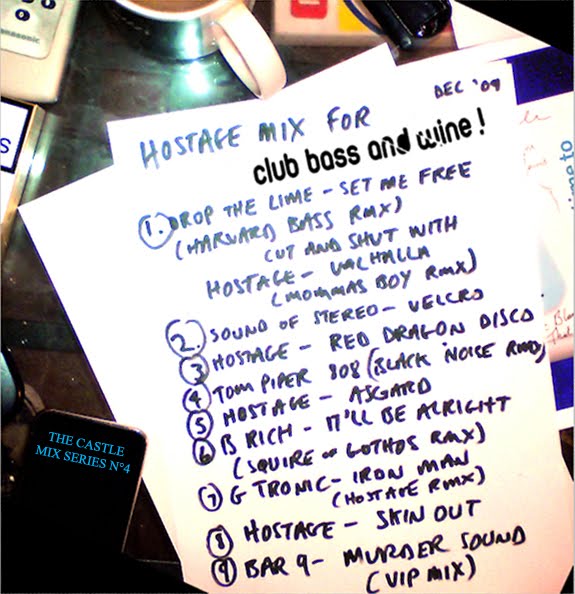 Panasonic
DEC '09
HOSTAGE MIX FOR
club bass and wine!
1. DROP THE LIME - SET ME FREE
(HARVARD BASS RMX)
CUT AND SHUT WITH
HOSTAGE - VALHALLA
(MOMMAS BOY RMX)
2. SOUND OF STEREO - VELCRO
3 HOSTAGE - RED DRAGON DISCO
4 TOM PIPER 808 (BLACK NOISE RMX)
5 HOSTAGE - ASGARD
6 B RICH - IT'LL BE ALRIGHT
(SQUIRE OF GOTHOS RMX)
7 G TRONIC - IRON MAN
(HOSTAGE RMX)
8 HOSTAGE - SKIN OUT
9 BAR 9 - MURDER SOUND
(VIP MIX)
THE CASTLE
MIX SERIES N°4
S
time to